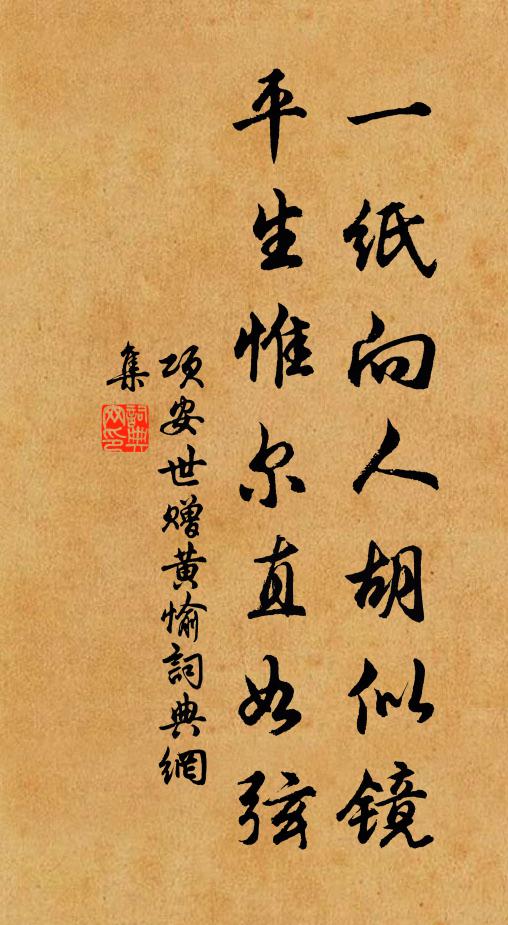 一纸向人胡似镜
平生惟尔直如弦
项安世赠黄愉詞典網
集
詞典網印